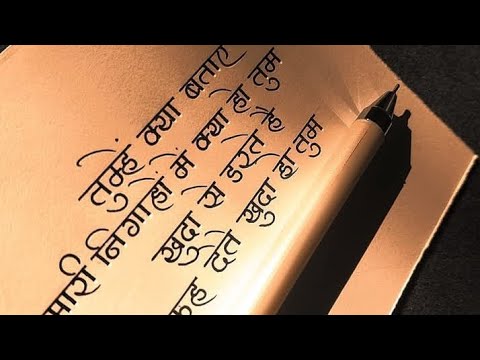 तुम्हें क्या बताएं
मारी निगाहों में क्या हो तुम
खुदा से डरते है
कह देते खुदा हो तुम